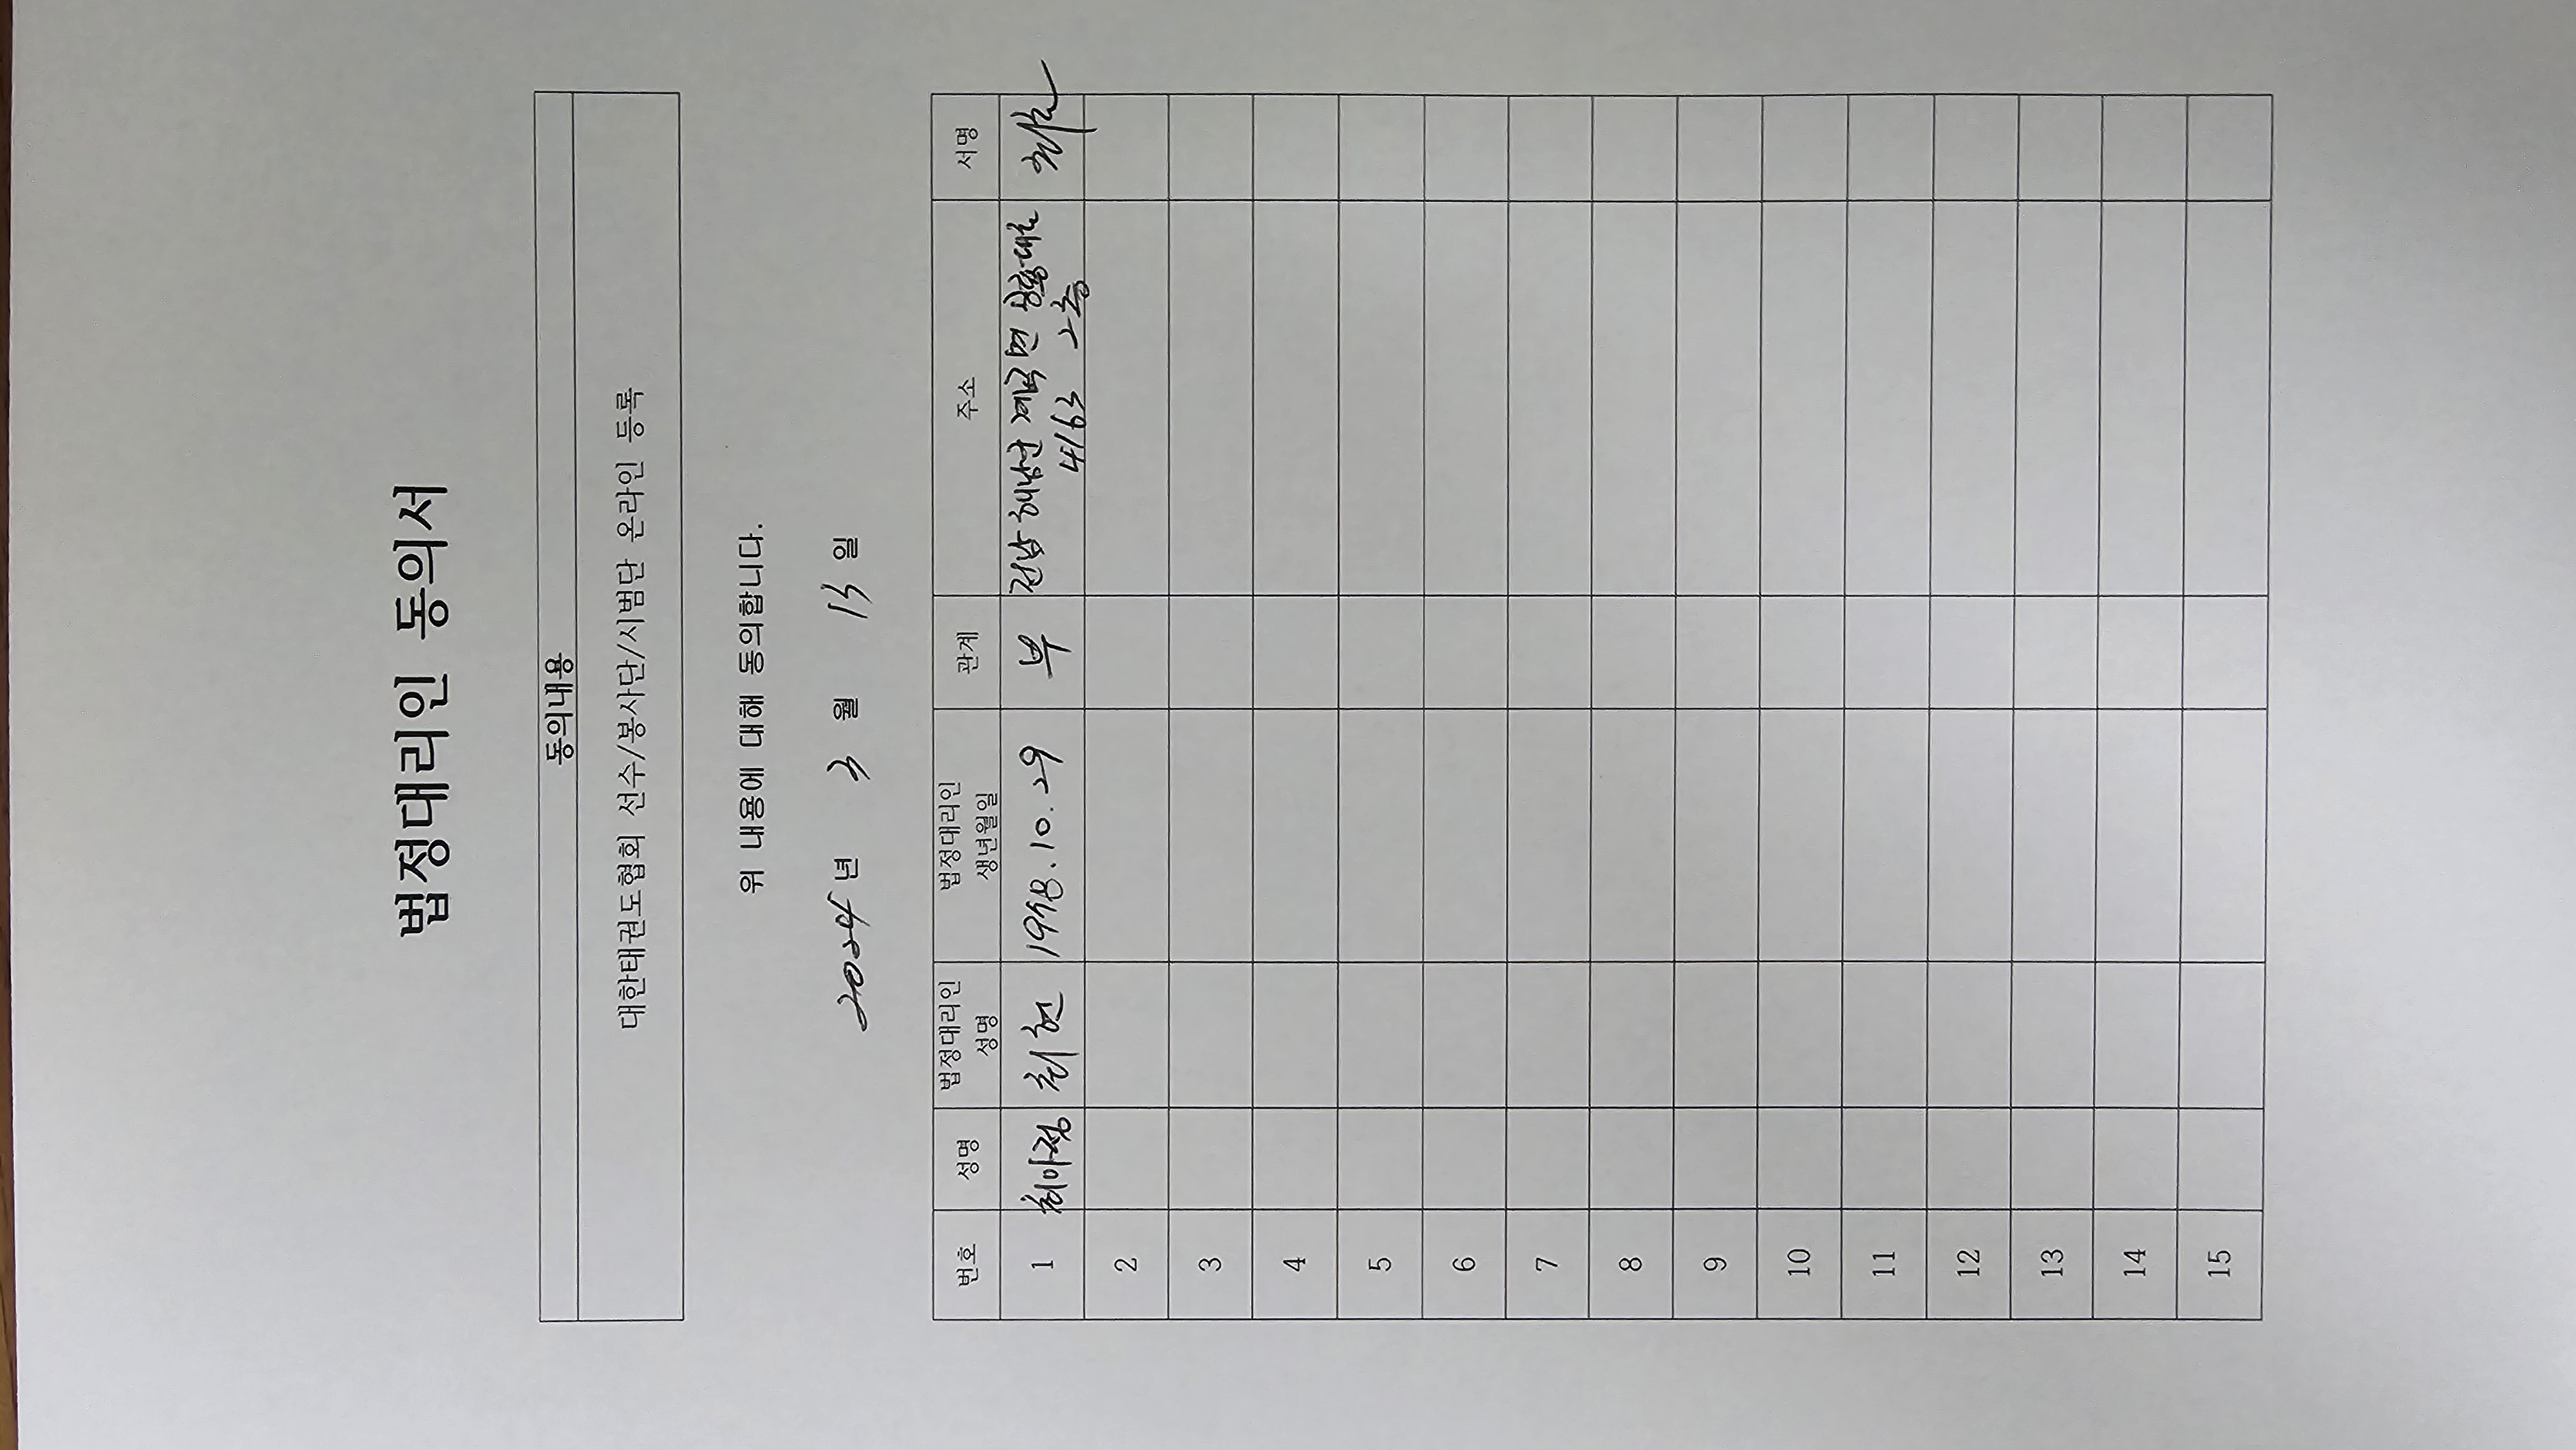 법정대리인 동의서
동의내용
대한태권도협회 선수/봉사단/시범단 온라인 등록
위 내용에 대해 동의합니다.
2024년 3 월 13 일
번호 성명 법정대리인 성명 법정대리인 생년월일 관계 주소 서명
1 최아정 최헌 10.29 부 전남 해남군 계곡면
4163 2층
2
3
4
5
6
7
8
9
10
11
12
13
14
15